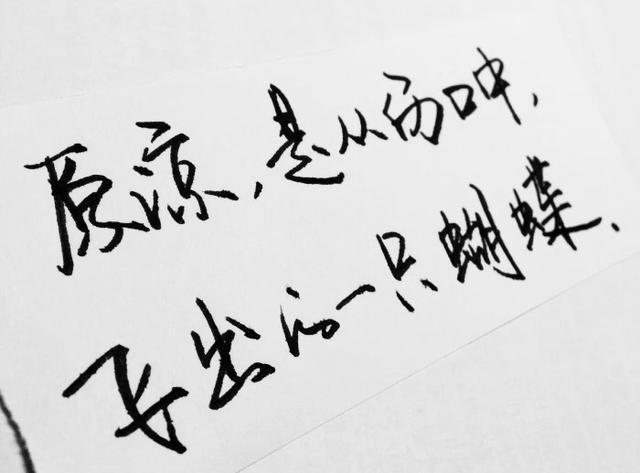 原谅,是从伤口中,
飞出的一只蝴蝶.